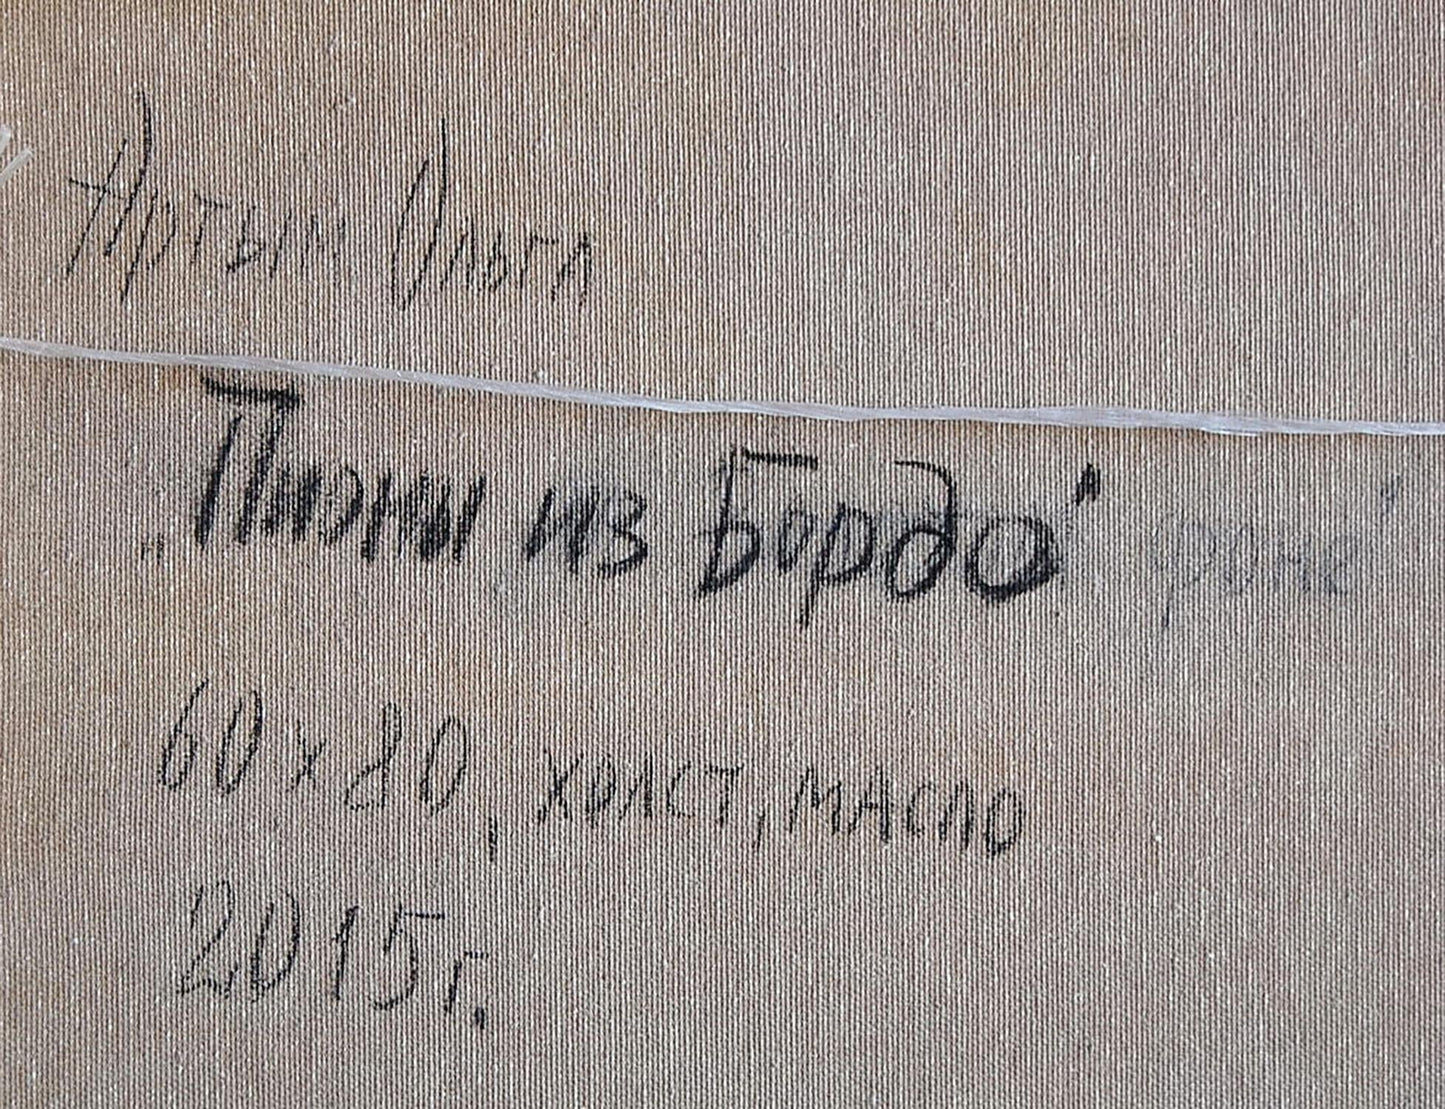 Артым Ольга
„Пиэны из Бордо" фоне"
60 х 80, холст, масло
2015 г.